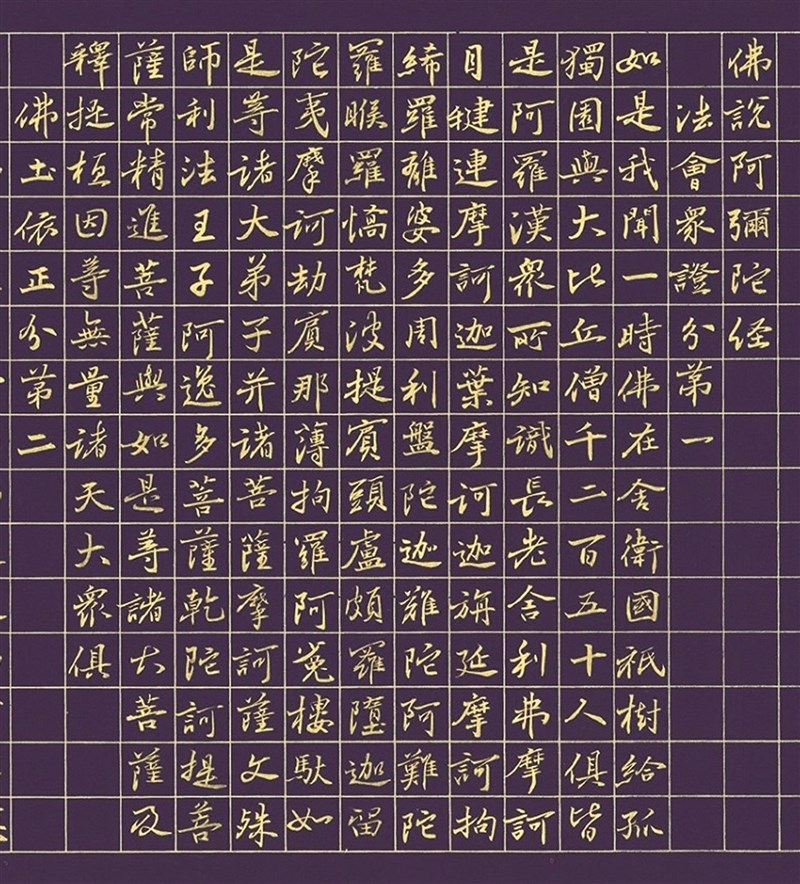 佛說阿彌陀経
法會眾證分第一
如是我聞一時佛在舍衛國祇樹給孤
獨園與大比丘僧千二百五十人俱皆
是阿羅漢眾所知識長老舍利弗摩訶
目犍連摩訶迦葉摩訶迦旃延摩訶拘
絺羅離婆多周利盤陀迦難陀阿難陀
羅睺羅憍梵波提賓頭盧頗羅墮迦留
陀夷摩訶劫賓那薄拘羅阿㝹樓馱如
是等諸大弟子并諸菩薩摩訶薩文殊
師利法王子阿逸多菩薩乾陀訶提菩
薩常精進菩薩與如是等諸大菩薩及
釋提桓因等無量諸天大眾俱
佛土依正分第二